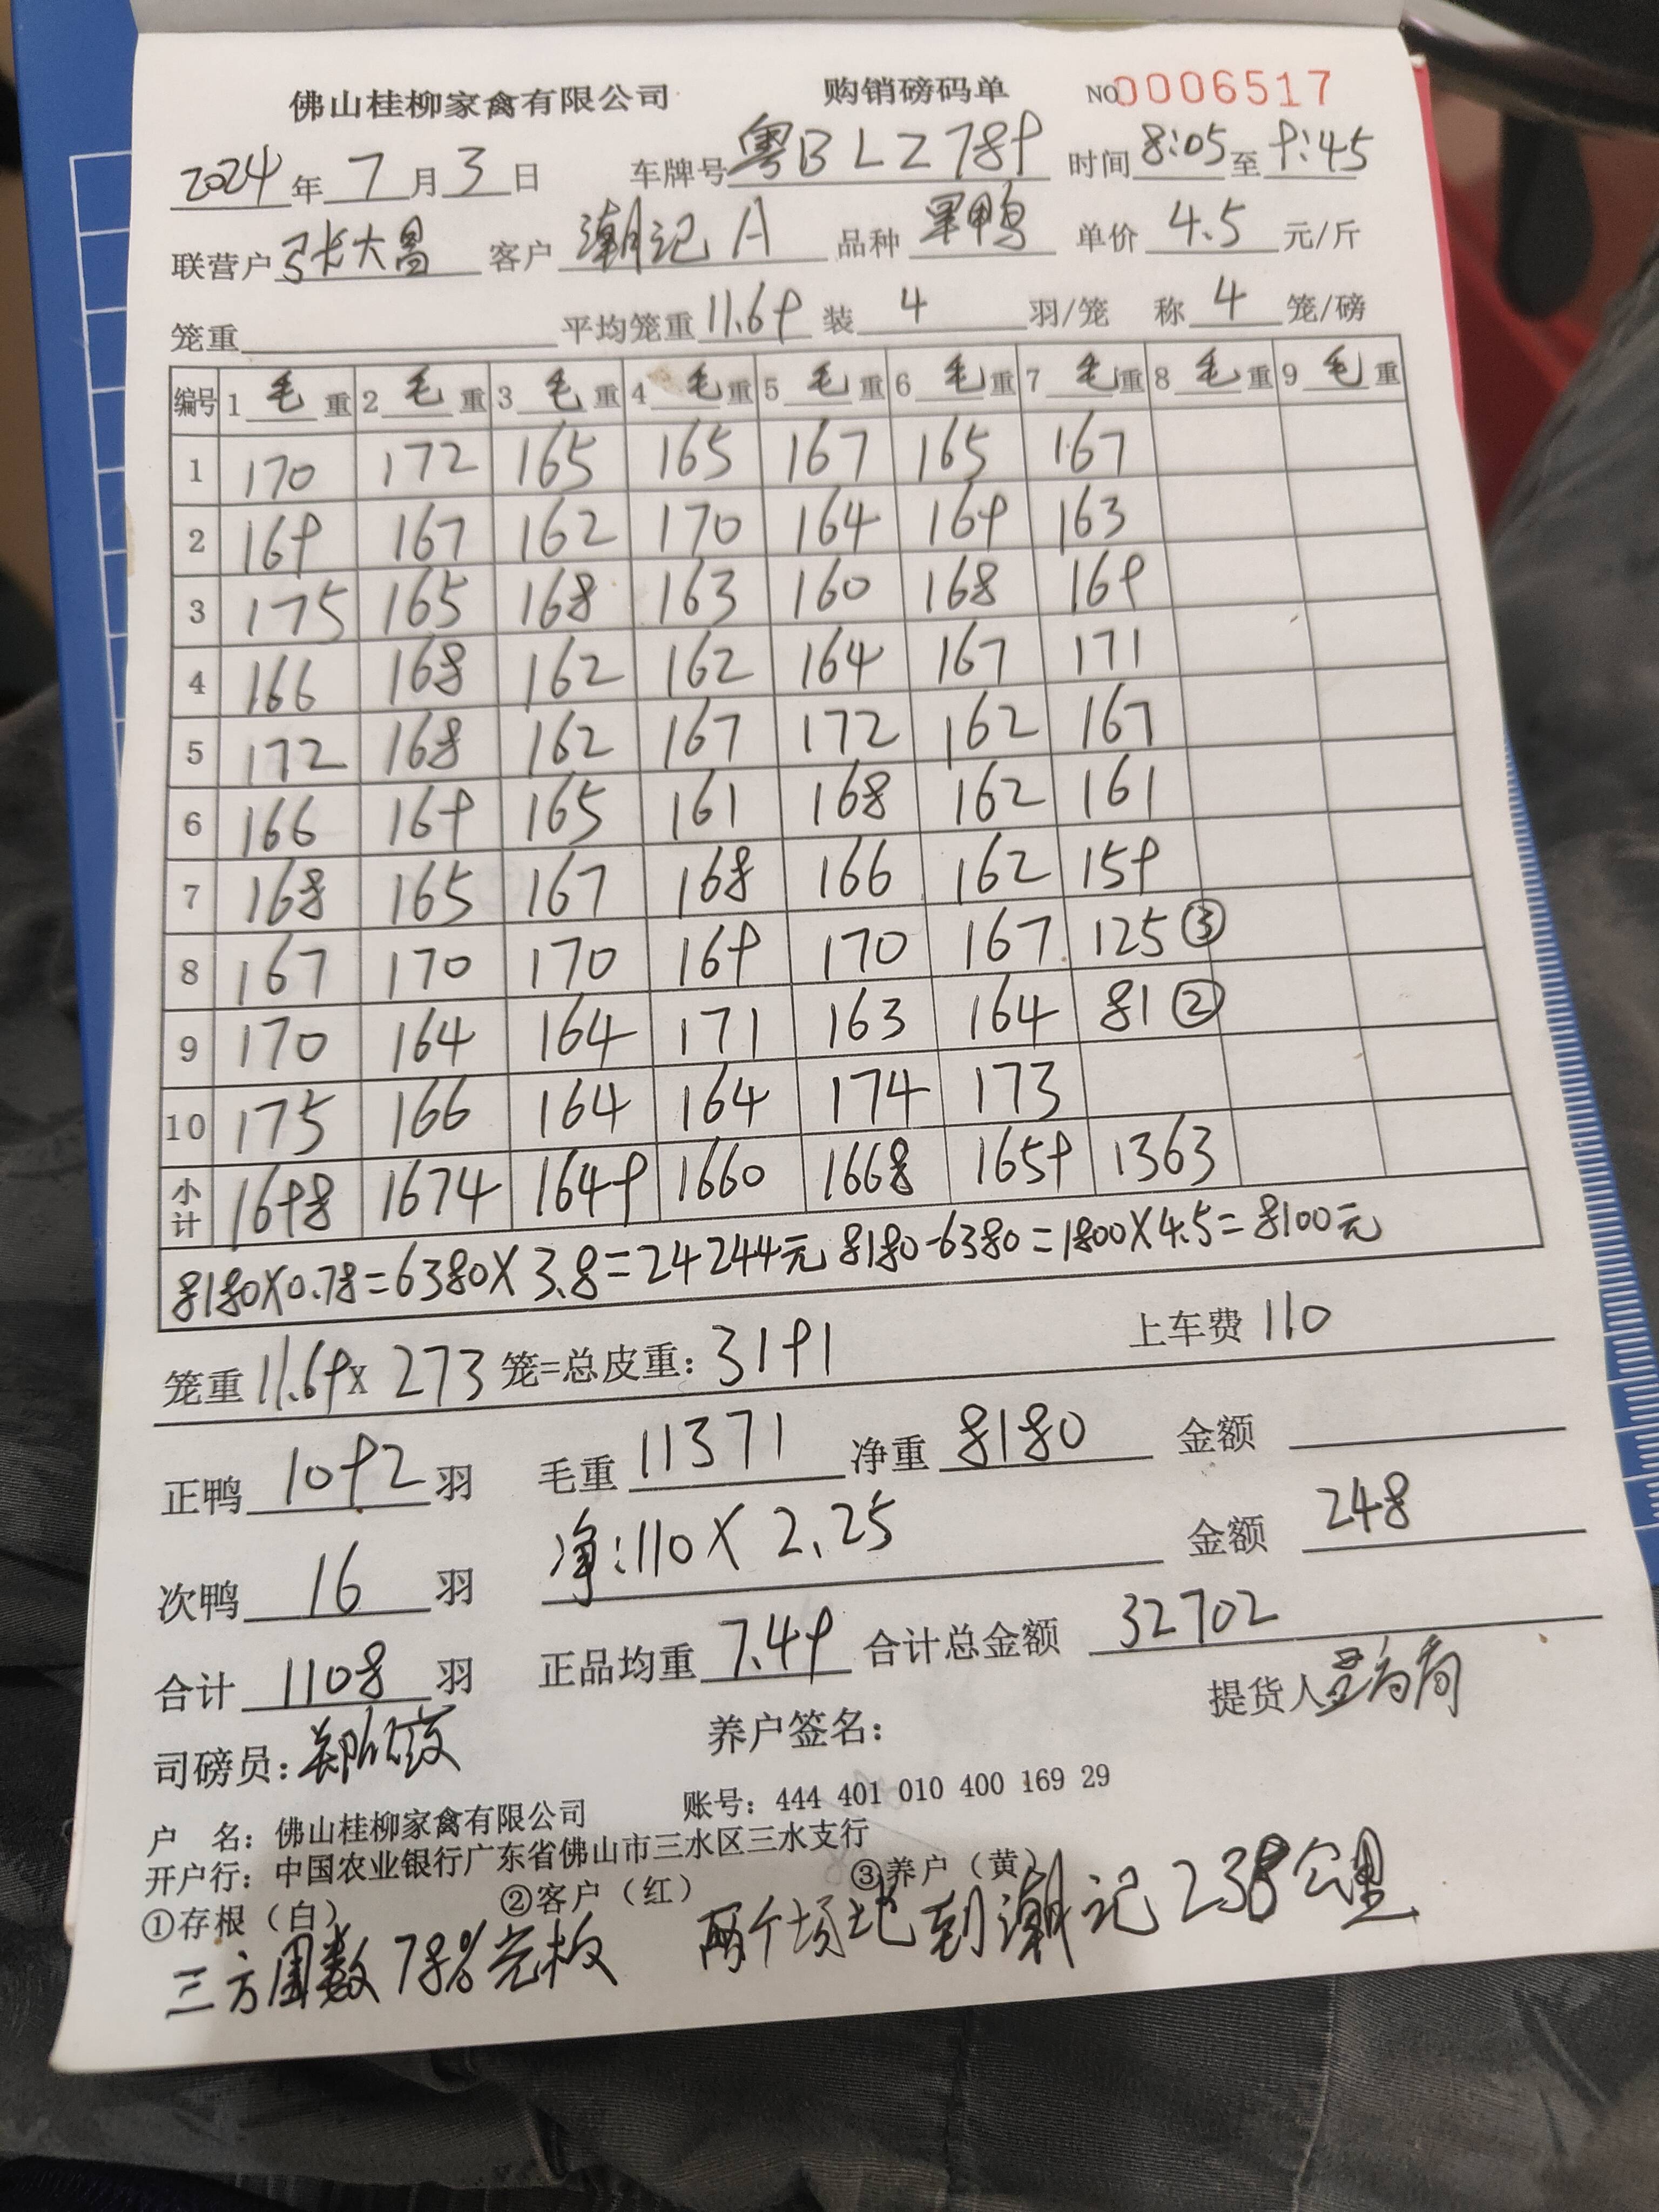 佛山桂柳家禽有限公司 购销磅码单 NO0006517
2024年7月3日 车牌号粤BLZ789 时间8:05至9:45
联营户张大昌 客户潮记A 品种黑鸭 单价4.5元/斤
笼重 平均笼重11.69 装4羽/笼 称4笼/磅
编号 1毛重 2毛重 3毛重 4毛重 5毛重 6毛重 7毛重 8毛重 9毛重
1 170 172 165 165 167 165 167
2 169 167 162 170 164 169 163
3 175 165 168 163 160 168 169
4 166 168 162 162 164 167 171
5 172 168 162 167 172 162 167
6 166 169 165 161 168 162 161
7 168 165 167 168 166 162 159
8 167 170 170 169 170 167 125③
9 170 164 164 171 163 164 81②
10 175 166 164 164 174 173
小计 1698 1674 1649 1660 1668 1659 1363
8180×0.78=6380×3.8=24244元 8180-6380=1800×4.5=8100元
笼重11.69x273笼=总皮重:3191 上车费110
正鸭1092羽 毛重11371 净重8180 金额
次鸭16羽 净:110×2.25 金额248
合计1108羽 正品均重7.49 合计总金额32702
司磅员: 养户签名: 提货人
户 名:佛山桂柳家禽有限公司 账号:444 401 010 400 169 29
开户行:中国农业银行广东省佛山市三水区三水支行
①存根(白) ②客户(红) ③养户(黄)
三方围数78% 两个场地到潮记238公里